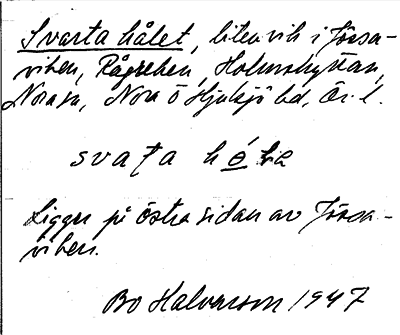 Svarta hålet, liten vik i Jössa-
viken, Rågreken, Holmshyttan,
Norasn, Nora o Hjulsjö bd, Ör. l.
svata hóle
Ligger på östra sidan av Jössa-
viken.
Bo Halvarson 1947